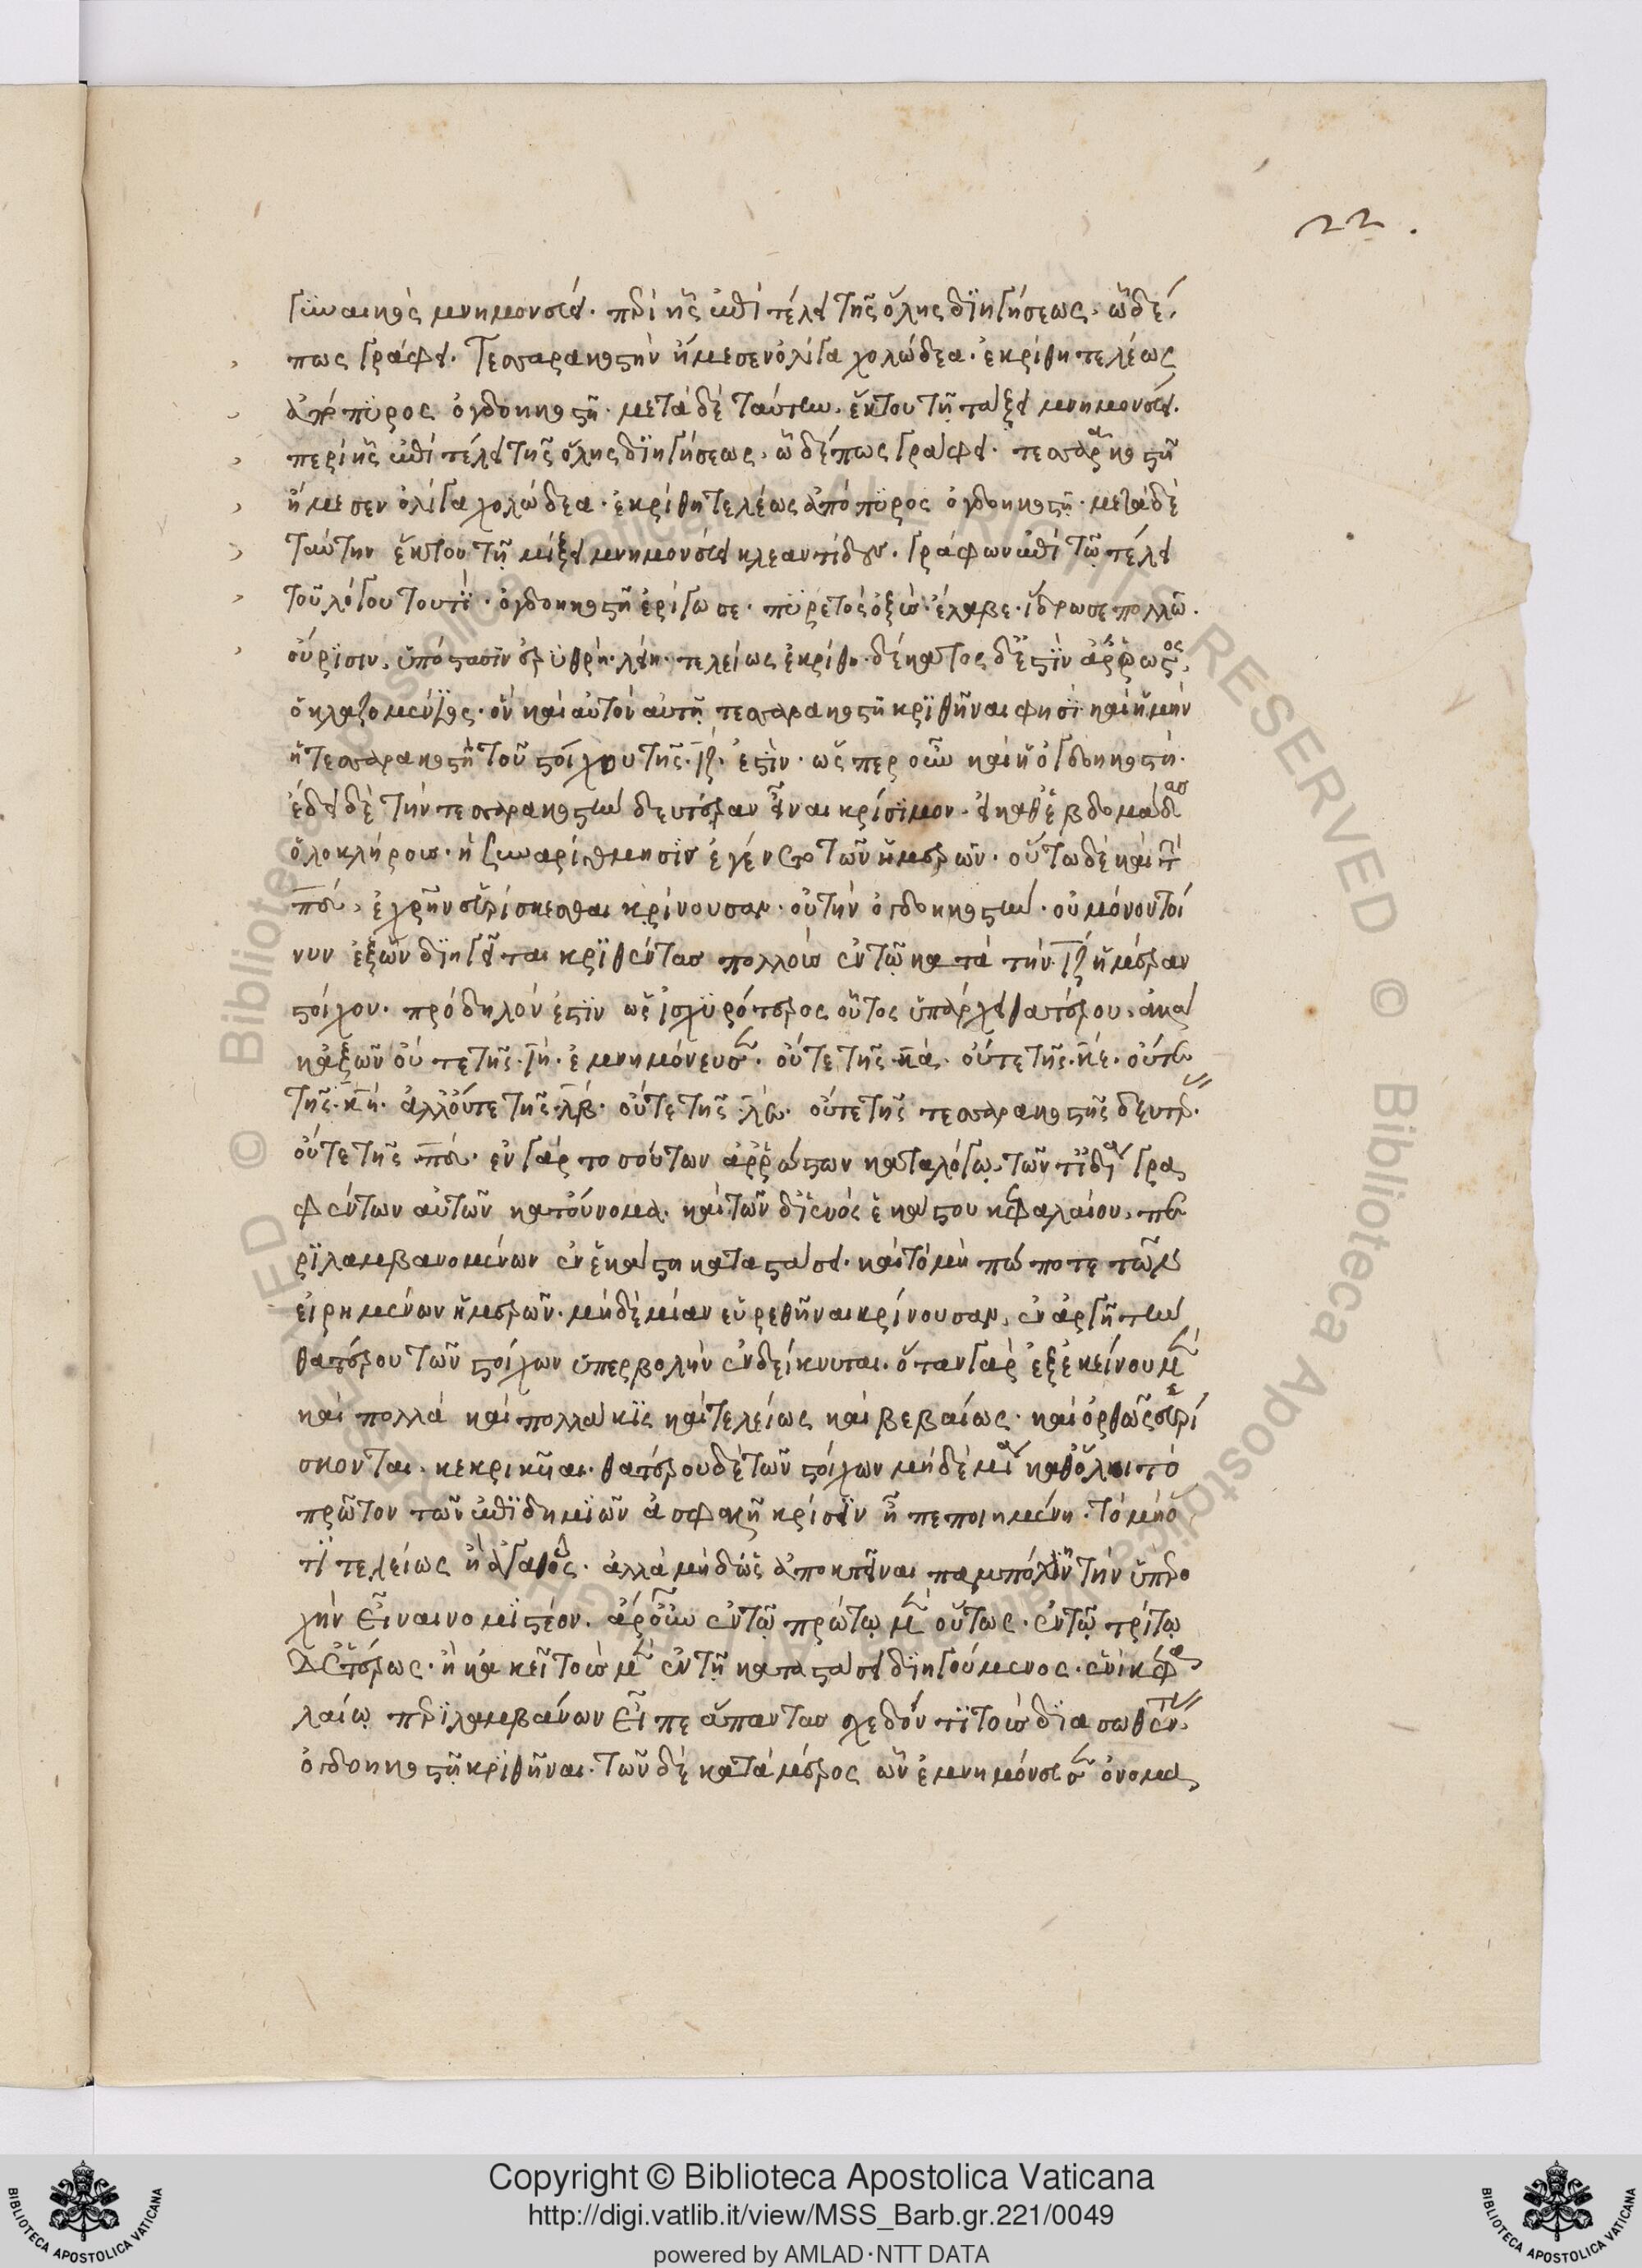 22.
γυναικὸς μνημονεύει. περὶ ἧς ἐπὶ τέλει τῆς ὅλης διηγήσεως, ὧδέ
πως γράφει. τεσσαρακοστὴν ἤμεσεν ὀλίγα χολώδεα. ἐκρίθη τελέως
ἄπυρος ὀγδοηκοστῇ. μετὰ δὲ ταύτην. ἕκτου τῇ τάξει μνημονεύει.
περὶ ἧς ἐπὶ τέλει τῆς ὅλης διηγήσεως, ὧδέ πως γράφει. τεσσαρακοστῇ
ἤμεσεν ὀλίγα χολώδεα. ἐκρίθη τελέως ἀπὸ πυρος ὀγδοηκοστῇ. μετὰ δὲ
ταύτην ἕκτου τῇ μίξει μνημονεύει κλεαντίδου. γράφων ἐπὶ τῷ τέλει
τοῦ λόγου τουτί. ὀγδοηκοστῇ ἐρίγωσε. πυρετὸς ὀξὺς ἔλαβε. ἵδρωσε πολλῷ.
οὔρισιν, ὑπόστασιν ἐρυθρὴ λείη. τελείως ἐκρίθη. δέκατος δ' ἐστὶν ἄρρωστος,
ὁ κλαζομένιος. ὃν καὶ αὐτὸν αὐτῇ τεσσαρακοστῇ κριθῆναι φησὶ καὶ ἡ μὴν
ἡ τεσσαρακοστὴ τοῦ στοίχου τῆς ιζ ἐστίν. ὥσπερ οὖν καὶ ἡ ὀγδοηκοστή.
ἔδει δὲ τὴν τεσσαρακοστὴν δευτέραν εἶναι κρίσιμον. εἰ καθ' ἑβδομάδας
ὁλοκλήρους. ἡ συναρίθμησιν ἐγένετο τῶν ἡμερῶν. οὕτω δὲ καὶ τὴν
πδ, ἐχρῆν εὑρίσκεσθαι κρίνουσαν. οὐ τὴν ὀγδοηκοστήν. οὐ μόνον τοί
νυν ἐξ ὧν διηγεῖται κριθέντας πολλοὺς ἐν τῷ κατὰ τὴν ιζ ἡμέραν
στοίχον. πρόδηλόν ἐστιν ὡς ἰσχυρότερος οὗτος ὑπάρχει θατέρου, ἀλλὰ
κἀξ ὧν οὔτε τῆς ιη ἐμνημόνευσεν. οὔτε τῆς κα. οὔτε τῆς κε. οὔτε
τῆς κη. ἀλλ' οὔτε τῆς λβ. οὔτε τῆς λε. οὔτε τῆς τεσσαρακοστῆς δευτέρας.
οὔτε τῆς πδ. ἐν γὰρ τοσούτων ἀρρώστων καταλόγῳ, τῶν τ' ἰδίᾳ γρα
φέντων αὐτῶν κατ' οὔνομα. καὶ τῶν δι' ἑνὸς ἑκάστου κεφαλαίου, πε
ριλαμβανομένων ἐν ἑκάστη καταστάσει. καὶ τὸ μὴ πώποτε τῶν
εἰρημένων ἡμερῶν. μηδεμίαν εὑρεθῆναι κρίνουσαν, ἐναργῆ τὴν
θατέρου τῶν στοίχων ὑπερβολὴν ἐνδείκνυται. ὅταν γὰρ ἐξ ἐκείνου μὲν
καὶ πολλὰ καὶ πολλάκις καὶ τελείως καὶ βεβαίως. καὶ ὀρθῶς εὑρί
σκονται, κεκρικῆαι. θατέρου δὲ τῶν στοίχων μηδεμία καθόλου τὸ
πρῶτον τῶν ἐπιδημιῶν ἀσφαλῆ κρίσιν ἦ πεποιημένη. τὸ μὴ ὅ
τι τελείως ἢ ἀγαθῶς. ἀλλὰ μηδ' ὡς ἀποκτεῖναι παμπόλλην τὴν ὑπερο
χὴν εἶναι νομιστέον. ἆρ' οὖν ἐν τῷ πρώτῳ μὲν οὕτως. ἐν τῷ τρίτῳ
δ' ἑτέρως. ἢ κἀκεῖ τοὺς μὲν ἐν τῇ καταστάσει διηγούμενος. ἑνὶ κεφα
λαίῳ περιλαμβάνων εἶπε ἅπαντας σχεδόν τι τοὺς διασωθέντας
ὀγδοηκοστῇ κριθῆναι. τῶν δὲ κατὰ μέρος ὧν ἐμνημόνευσεν ὀνομα
Copyright © Biblioteca Apostolica Vaticana
http://digi.vatlib.it/view/MSS_Barb.gr.221/0049
powered by AMLAD·NTT DATA
BIBLIOTECA APOSTOLICA VATICANA
BIBLIOTECA APOSTOLICA VATICANA